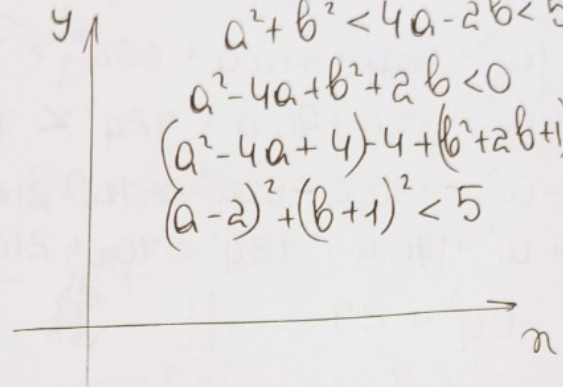 y
a² + b² < 4a - 2b < 5
a² - 4a + b² + 2b < 0
(a² - 4a + 4) - 4 + (b² + 2b + 1
(a - 2)² + (b + 1)² < 5
x